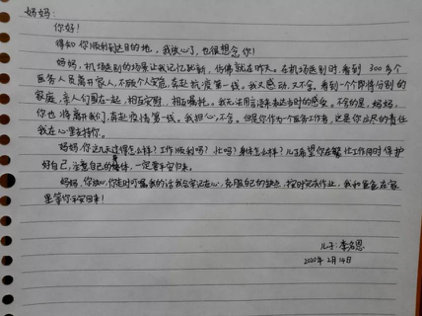 妈妈：
你好！
得知你顺利到达目的地，我放心了，也很想念你！
妈妈，机场送别的场景让我记忆犹新，仿佛就在昨天。在机场送别时，看到300多个
医务人员离开家人，不顾个人安危，奔赴抗疫第一线。我又感动，又不舍。看到一个个即将分别的
家庭，亲人们围在一起，相互安慰，相互嘱托。我无法用言语来表达当时的感受。不舍的是，妈妈，
你也将离开我们，奔赴疫情第一线。我担心，不舍。但是你作为一个医务工作者，这是你应尽的责任
我在心里支持你。
妈妈，你这几天过得怎么样？工作顺利吗？忙吗？身体怎么样？儿子希望你在繁忙工作同时保护
好自己，注意自己的身体，一定要平安归来。
妈妈，你放心，你走时叮嘱我的话我会牢记在心，克服自己的缺点，按时完成作业，我和爸爸在家
里等你平安归来！
儿子：李
2020年2月14日